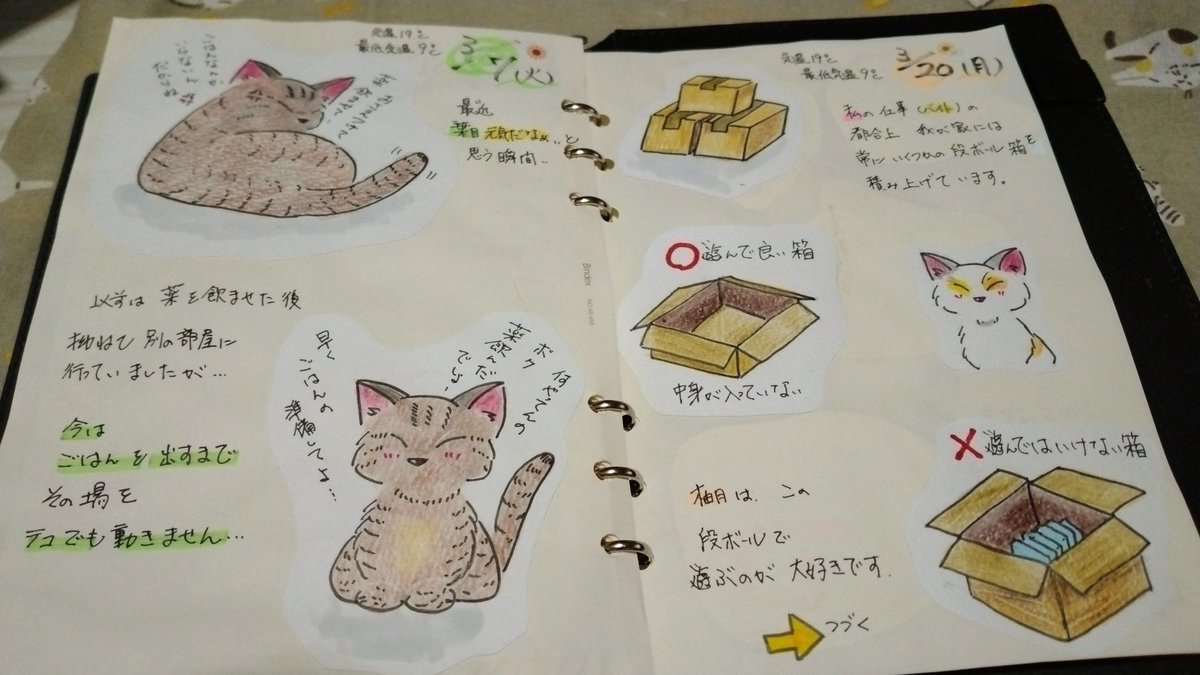 気温19℃
最低気温9℃
3/7(火)
最近
葉月元気だなぁ…と
思う瞬間…
以前は 薬を飲ませた後
拗ねて 別の部屋に
行っていましたが…
今は
ごはんを出すまで
その場を
テコでも動きません…
何やてんの
ボク
薬飲んだ
でしょ…
早く
ごはんの
準備してよ…
気温19℃
最低気温9℃
3/20(月)
私の仕事(バイト)の
都合上 我が家には
常にいくつかの段ボール箱を
積み上げています。
○遊んで良い箱
中身が入っていない
×遊んではいけない箱
柚月は、この
段ボールで
遊ぶのが 大好きです
つづく